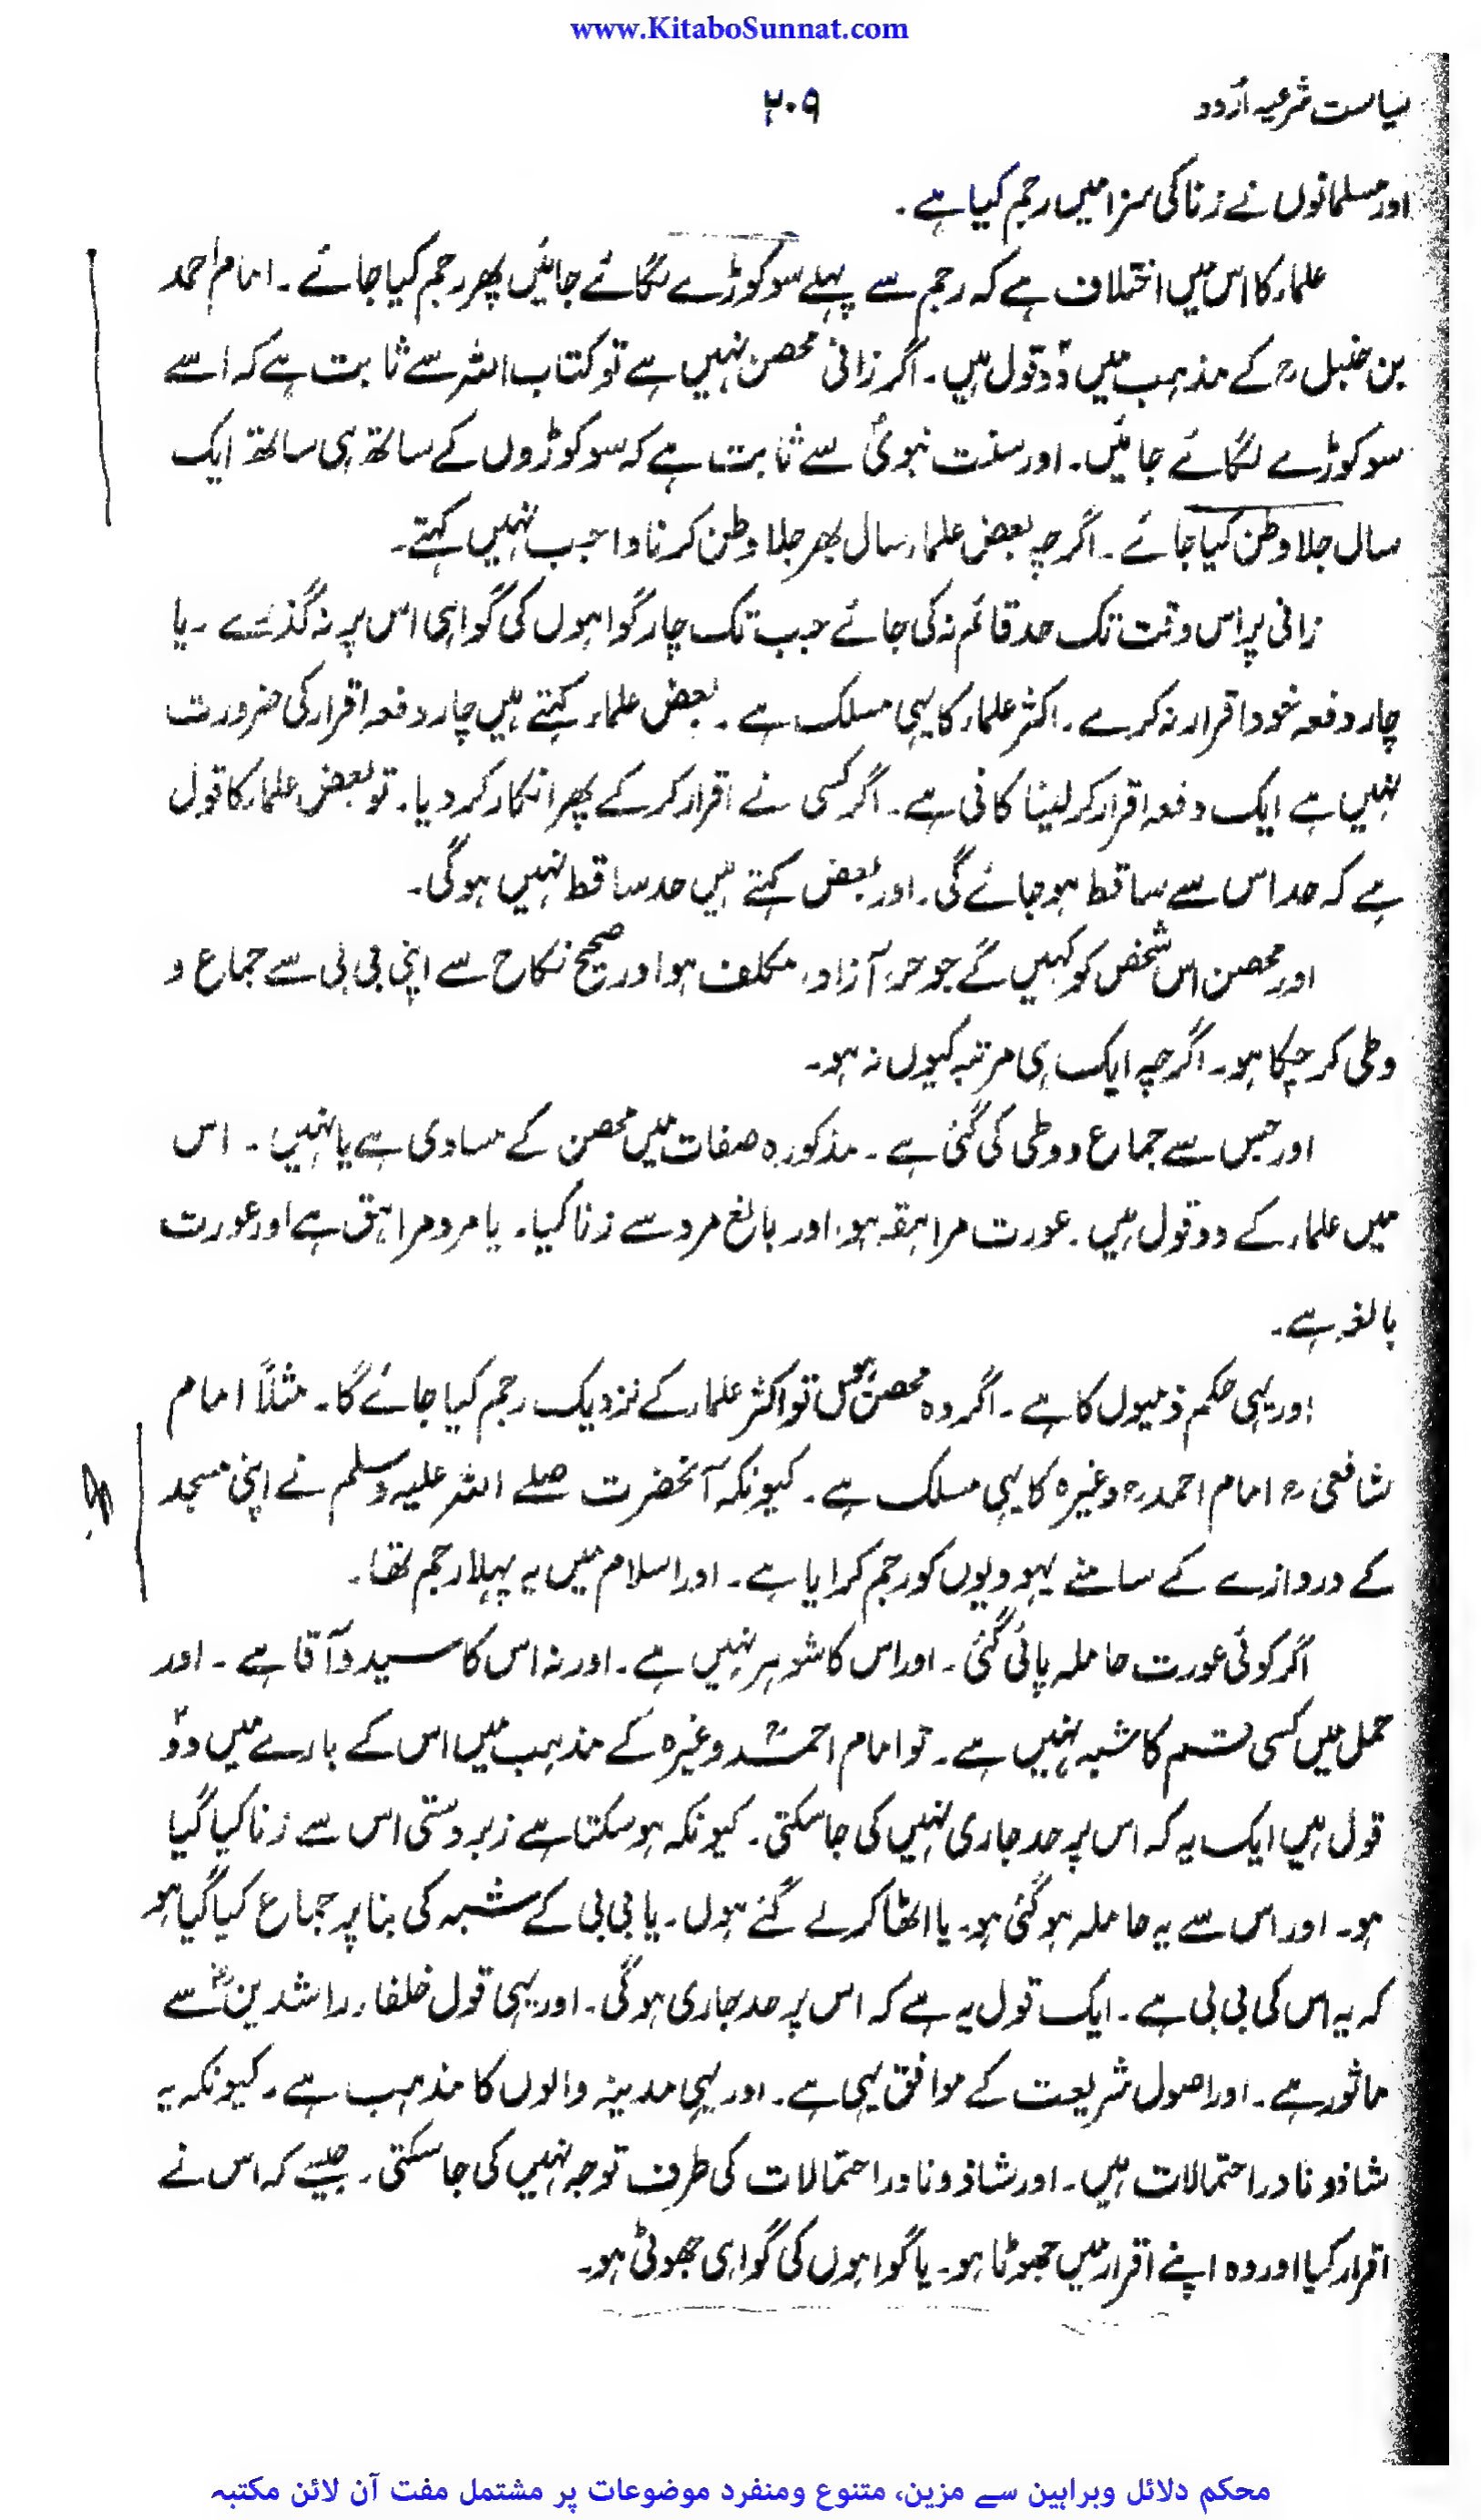 www.KitaboSunnat.com
سیاست شرعیہ اُردو
۲۰۹
اور مسلمانوں نے زنا کی سزا میں رجم کیا ہے۔
علماء کا اس میں اختلاف ہے کہ رجم سے پہلے سو کوڑے لگائے جائیں پھر رجم کیا جائے۔ امام احمد
بن حنبلؒ کے مذہب میں دو قول ہیں۔ اگر زانی محصن نہیں ہے تو کتاب اللہ سے ثابت ہے کہ اسے
سو کوڑے لگائے جائیں۔ اور سنت نبویؐ سے ثابت ہے کہ سو کوڑوں کے ساتھ ہی ساتھ ایک
سال جلا وطن کیا جائے۔ اگرچہ بعض علماء سال بھر جلا وطن کرنا واجب نہیں کہتے۔
زانی پر اس وقت تک حد قائم نہ کی جائے جب تک چار گواہوں کی گواہی اس پر نہ گذرے۔ یا
چار دفعہ خود اقرار نہ کرے۔ اکثر علماء کا یہی مسلک ہے۔ بعض علماء کہتے ہیں چار دفعہ اقرار کی ضرورت
نہیں ہے ایک دفعہ اقرار کر لینا کافی ہے۔ اگر کسی نے اقرار کر کے پھر انکار کر دیا۔ تو بعض علماء کا قول
ہے کہ حد اس سے ساقط ہو جائے گی۔ اور بعض کہتے ہیں حد ساقط نہیں ہوگی۔
اور محصن اس شخص کو کہیں گے جو حر، آزاد، مکلف ہو اور صحیح نکاح سے اپنی بی بی سے جماع و
وطی کر چکا ہو۔ اگرچہ ایک ہی مرتبہ کیوں نہ ہو۔
اور جس سے جماع و وطی کی گئی ہے۔ مذکورہ صفات میں محصن کے مساوی ہے یا نہیں۔ اس
میں علماء کے دو قول ہیں۔ عورت مراہقہ ہو اور بالغ مرد سے زنا کیا۔ یا مرد مراہق ہے اور عورت
بالغہ ہے۔
اور یہی حکم ذمیوں کا ہے۔ اگر وہ محصن ہیں تو اکثر علماء کے نزدیک رجم کیا جائے گا۔ مثلاً امام
شافعیؒ امام احمدؒ وغیرہ کا یہی مسلک ہے۔ کیونکہ آنحضرت صلے اللہ علیہ وسلم نے اپنی مسجد
کے دروازے کے سامنے یہودیوں کو رجم کرایا ہے۔ اور اسلام میں یہ پہلا رجم تھا۔
اگر کوئی عورت حاملہ پائی گئی۔ اور اس کا شوہر نہیں ہے۔ اور نہ اس کا سید و آقا ہے۔ اور
حمل میں کسی قسم کا شبہ نہیں ہے۔ تو امام احمدؒ وغیرہ کے مذہب میں اس کے بارے میں دو
قول ہیں ایک یہ کہ اس پر حد جاری نہیں کی جا سکتی۔ کیونکہ ہو سکتا ہے زبردستی اس سے زنا کیا گیا
ہو۔ اور اس سے یہ حاملہ ہو گئی ہو۔ یا اٹھا کر لے گئے ہوں۔ یا بی بی کے شبہ کی بنا پر جماع کیا گیا ہو
کہ یہ اس کی بی بی ہے۔ ایک قول یہ ہے کہ اس پر حد جاری ہوگی۔ اور یہی قول خلفاء راشدینؓ سے
ماثور ہے۔ اور اصول شریعت کے موافق یہی ہے۔ اور یہی مدینہ والوں کا مذہب ہے۔ کیونکہ یہ
شاذ و نادر احتمالات ہیں۔ اور شاذ و نادر احتمالات کی طرف توجہ نہیں کی جا سکتی۔ جیسے کہ اس نے
اقرار کیا اور وہ اپنے اقرار میں جھوٹا ہو۔ یا گواہوں کی گواہی جھوٹی ہو۔
محکم دلائل وبراہین سے مزین، متنوع ومنفرد موضوعات پر مشتمل مفت آن لائن مکتبہ